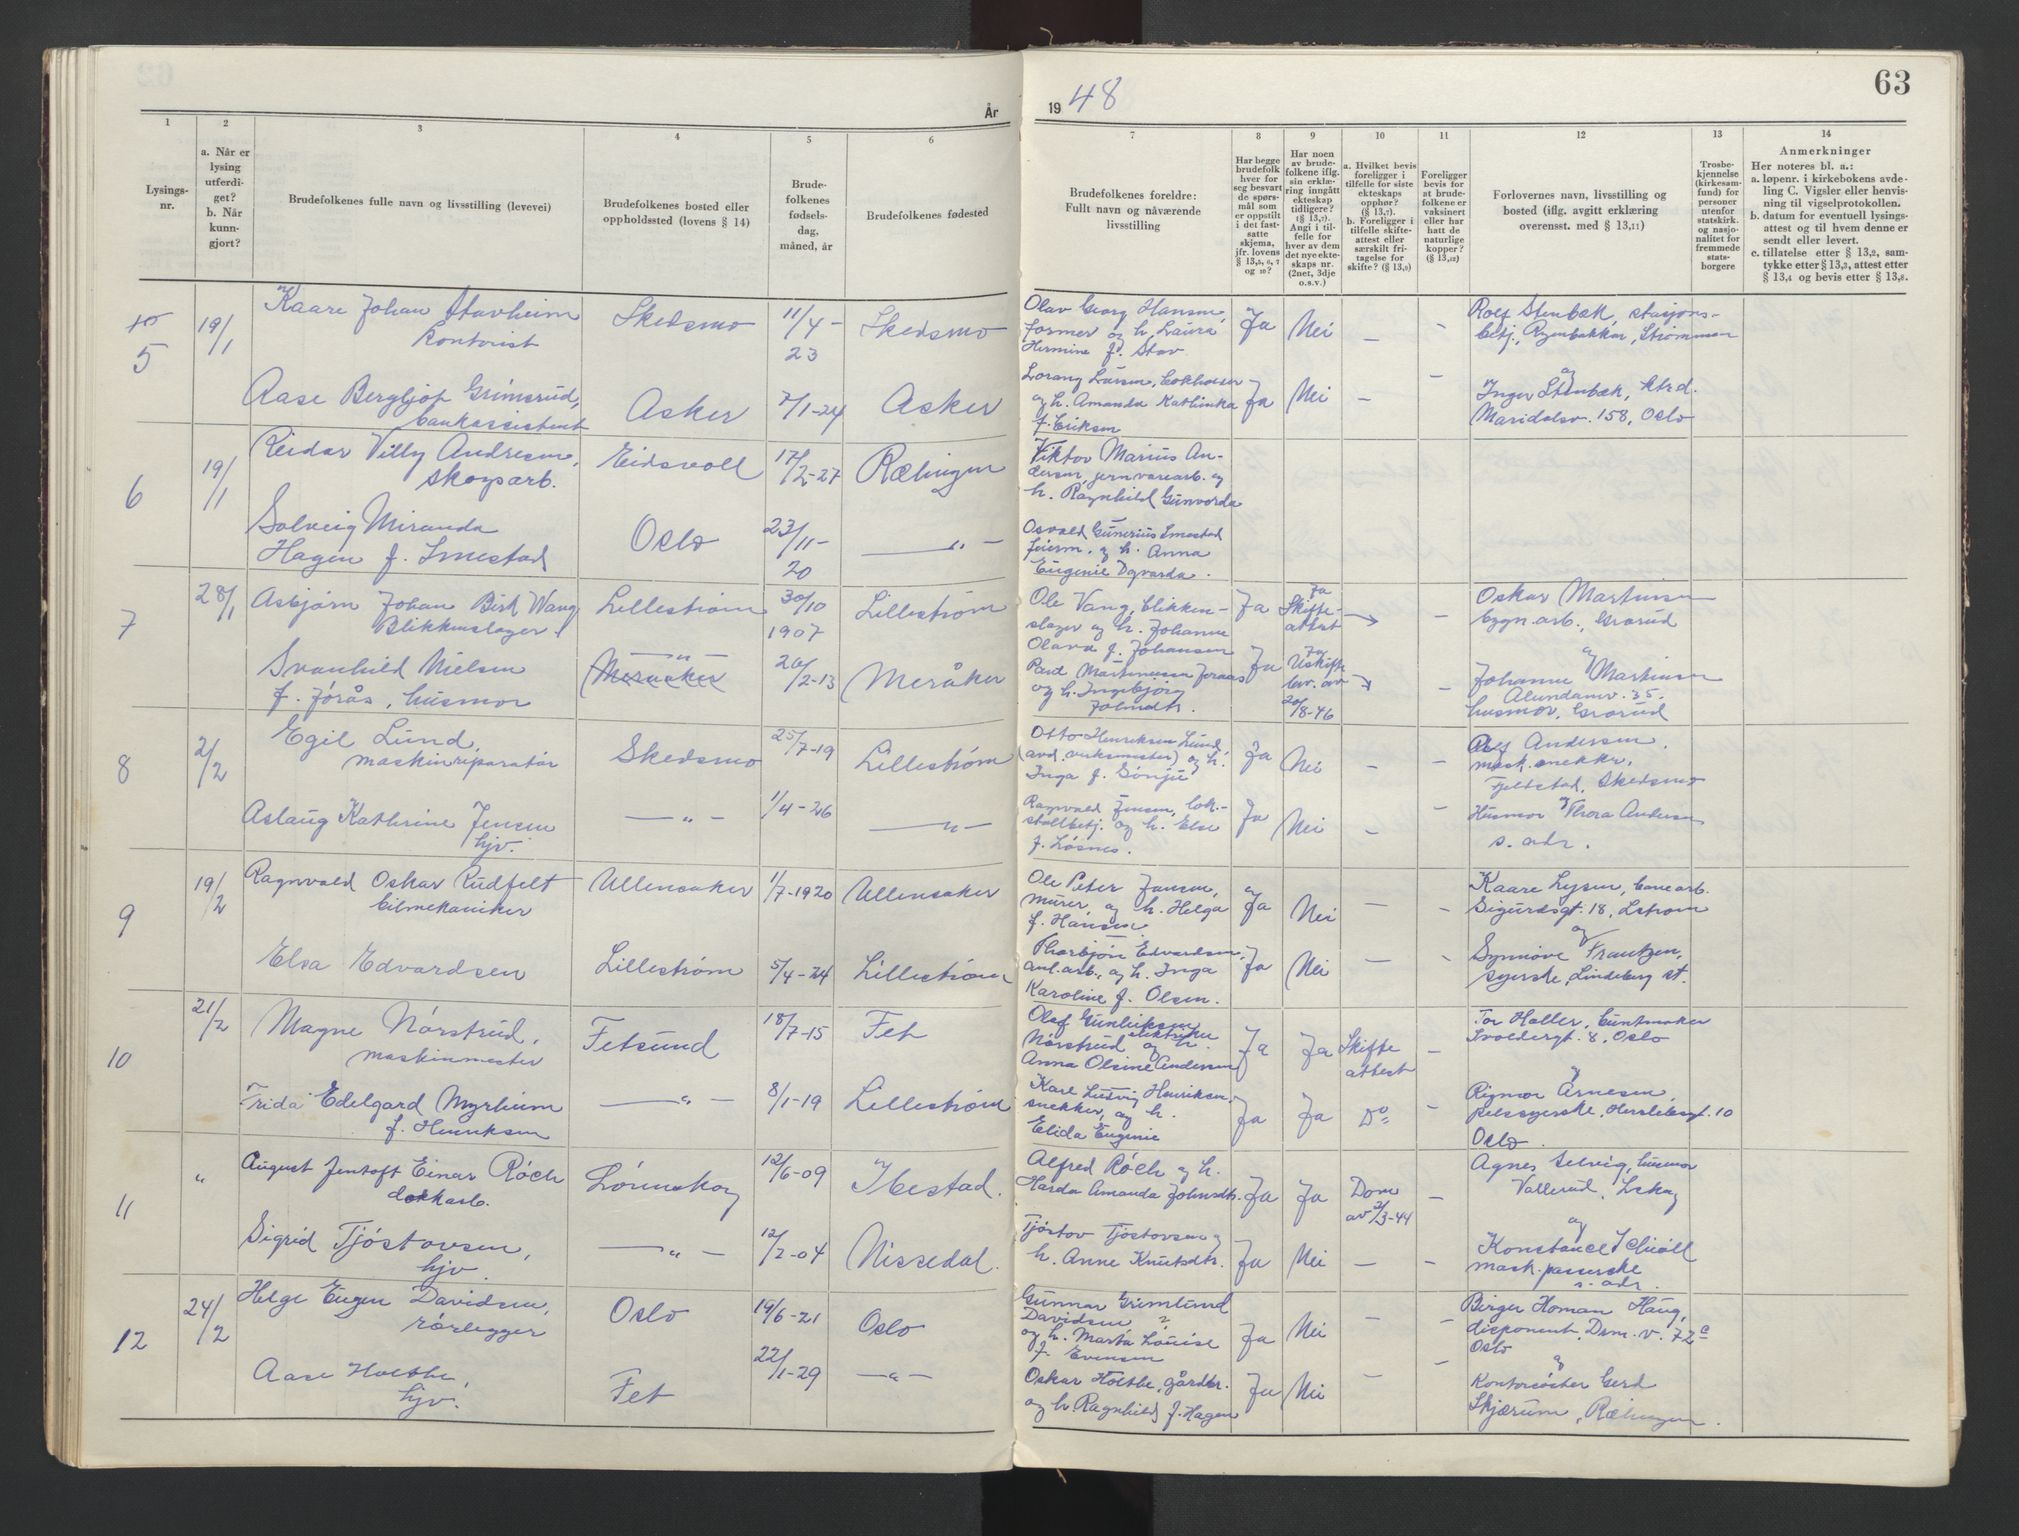 År
19 48
63
1
2
3
4
5
6
7
8
9
10
11
12
13
14
Lysings-
nr.
a. Når er
lysing
utferdi-
get?
b. Når
kunn-
gjort?
Brudefolkenes fulle navn og livsstilling (levevei)
Brudefolkenes bosted eller
oppholdssted (lovens § 14)
Brude-
folkenes
fødsels-
dag,
måned, år
Brudefolkenes fødested
Brudefolkenes foreldre:
Fullt navn og nåværende
livsstilling
Har begge
brudefolk
hver for
seg besvart
de spørs-
mål som
er oppstilt
i det fast-
satte
skjema,
jfr. lovens
§ 13,5, 6, 7
og 10?
Har noen
av brude-
folkene iflg.
sin erklæ-
ring inngått
ekteskap
tidligere?
(§ 13,7).
Angi i til-
felle for
hver av dem
det nye ekte-
skaps nr.
(2net, 3dje
o.s.v.)
a. Hvilket bevis
foreligger i
tilfelle for siste
ekteskaps
opphør?
(§ 13,7).
b. Foreligger i
tilfelle skifte-
attest eller
særskilt fri-
tagelse for
skifte? (§ 13,9)
Foreligger
bevis for
at brude-
folkene er
vaksinert
eller har
hatt de
naturlige
kopper?
(§ 13,12)
Forlovernes navn, livsstilling og
bosted (iflg. avgitt erklæring
overensst. med § 13,11)
Trosbe-
kjennelse
(kirkesam-
fund) for
personer
utenfor
statskirk.
og nasjo-
nalitet for
fremmede
stats-
borgere
Anmerkninger
Her noteres bl. a.:
a. løpenr. i kirkebokens avde-
ling C. Vigsler eller henvis-
ning til vigselprotokollen.
b. datum for eventuell lysings-
attest og til hvem denne er
sendt eller levert.
c. tillatelse etter § 13,2, sam-
tykke etter § 13,3, attest etter
§ 13,4 og bevis etter § 13,8.
5
19/1
Kaare Johan Stavheim
kontorist
Skedsmo
11/4-
23
Skedsmo
Olav Georg Hansen,
former og h. Laura
Hermine f. Stav
Ja
Nei
—
—
Rolf Stenbæk, stasjons-
betj., Ryenbakken, Strømmen
og
Aase Bergljot Grimsrud,
bankassistent
Asker
7/1-24
Asker
Lorang Larsen,
og h. Amanda Kathinka
f. Eriksen
Ja
Nei
—
—
Inger Stenbæk, ktrd.
Maridalsv. 158, Oslo
6
19/1
Reidar Villy Andresen,
skogsarb.
Eidsvoll
17/2-27
Rælingen
Viktor Marius An-
dersen, jernvarearb. og
h. Ragnhild Gunvorda
Solveig Miranda
Hagen f. Smestad
Oslo
23/11-
20
—"—
Osvald Gunerius Smestad
feierm. og h. Anna
Eugenie Dgvarda.
7
28/1
Asbjørn Johan Birk Wang
Blikkenslager
Lillestrøm
30/10
1907
Lillestrøm
Ole Vang, blikken-
slager og h. Johanne
Olava f. Johansen
Ja
Ja
Skifte-
attest
—
Oskar Martinsen
bygn.arb., Grorud
og
Svanhild Nielsen
f. Jørås, husmor
—"—
Meraaker
26/2-13
Meråker
Paul Martinussen Joraas
og h. Ingebjørg
Johnsdtr.
Ja
Ja
Uskifte
bev. av
20/8-46
—
Johanne Martinsen
Alundamv. 35,
husmor, Grorud
8
2/2
Egil Lund,
maskinreparatør
Skedsmo
25/7-19
Lillestrøm
Otto Henriksen Lund
(avd. verksmester) og h.
Inga f. Sønju
Ja
Nei
—
—
Rolf Andersen,
mask.snekker,
Fjeldstad, Skedsmo
og
Aslaug Kathrine Jensen
hjv.
—"—
1/4-26
—"—
Ragnvald Jensen, lok.-
stallbetj. og h. Else
f. Løsnes.
Ja
Nei
—
—
Husmor Thora Andersen
s. adr.
9
19/2
Ragnvald Oskar Rudfelt
bilmekaniker
Ullensaker
1/7-1920
Ullensaker
Ole Peter Jansen,
murer og h. Helga
f. Hansen
Ja
Nei
—
—
Kaare Lysen, banearb.
Sigurdsgt. 18, Lstrøm
og
Elsa Edvardsen
Lillestrøm
5/4-24
Lillestrøm
Thorbjørn Edvardsen,
anl.arb., og h. Inga
Karoline f. Olsen.
Ja
Nei
—
—
Synnøve Frantzen,
syerske, Lindeberg st.
10
21/2
Magne Nørstrud,
maskinmester
Fetsund
18/7-15
Fet
Olaf Gunleiksen
Nørstrud elektriker og h.
Anna Olsine Andersen
Ja
Ja
Skifte
attest
—
Tor Haller, buntmaker
Tvoldergt. 8, Oslo
og
Frida Edelgard Myrheim
f. Henriksen
—"—
8/1-19
Lillestrøm
Kare Ludvig Henriksen,
snekker, og h.
Elida Eugenie
Ja
Ja
Do
—
Rigmor Arnesen,
pelssyerske, Herslebsgt. 10
Oslo.
11
"
August Jentoft Einar Røch
dokkarb.
Lørenskog
12/6-09
Ibestad.
Alfred Røch og h.
Harda Amanda Johnsdtr.
Ja
Ja
Dom
av 2/3-44
—
Agnes Selvig, husmor
Vallerud, Lskog
og
Sigrid Tjøstovsen,
hjv.
—"—
12/2-04
Nissedal.
Tjøstov Tjøstovsen og
h. Anne Knutsdtr.
Ja
Nei
—
—
Konstance
mask.passerske
s. adr.
12
24/2
Helge Eugen Davidsen,
rørlegger
Oslo
19/6-21
Oslo
Gunnar Grimlund
Davidsen
og h. Marta Louise
f. Evensen
Ja
Nei
—
—
Birger Homan Haug,
disponent, Drm. v. 72 c
Oslo
og
Aase Holtbe,
hjv.
Fet
22/1-29
—"—
Oskar Holtbe, gårdbr.
og h. Ragnhild f. Hagen
Ja
Nei
—
—
Kontorsøster Gerd
Skjærum, Rælingen.